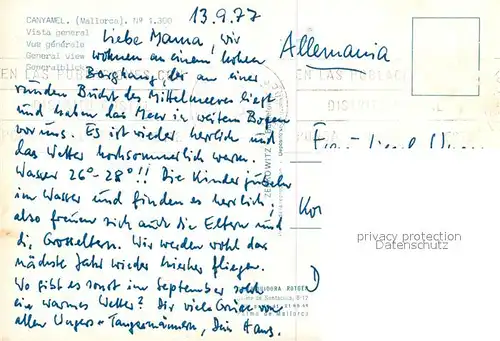 CANYAMEL. (Mallorca). Nº 1.300
Vista general
Vue générale
General view
Generalblick
13.9.77
Liebe Mama, wir
wohnen an einem hohen
Berghang, der an einer
runden Bucht des Mittelmeeres liegt
und haben das Meer in weitem Bogen
vor uns. Es ist wieder herrlich und
das Wetter hochsommerlich warm.
Wasser 26°-28°!! Die Kinder jubeln
im Wasser und finden es herrlich!
also freuen sich auch die Eltern und
die Grosseltern. Wir werden wohl das
nächste Jahr wieder hierher fliegen.
Wo gibt es sonst im September solch
ein warmes Wetter? Dir viele Grüsse von
allen Ungers-Tangermännern, Dein Hans.
Allemania
privacy protection
Datenschutz
ZERKOWITZ
Palma de Mallorca